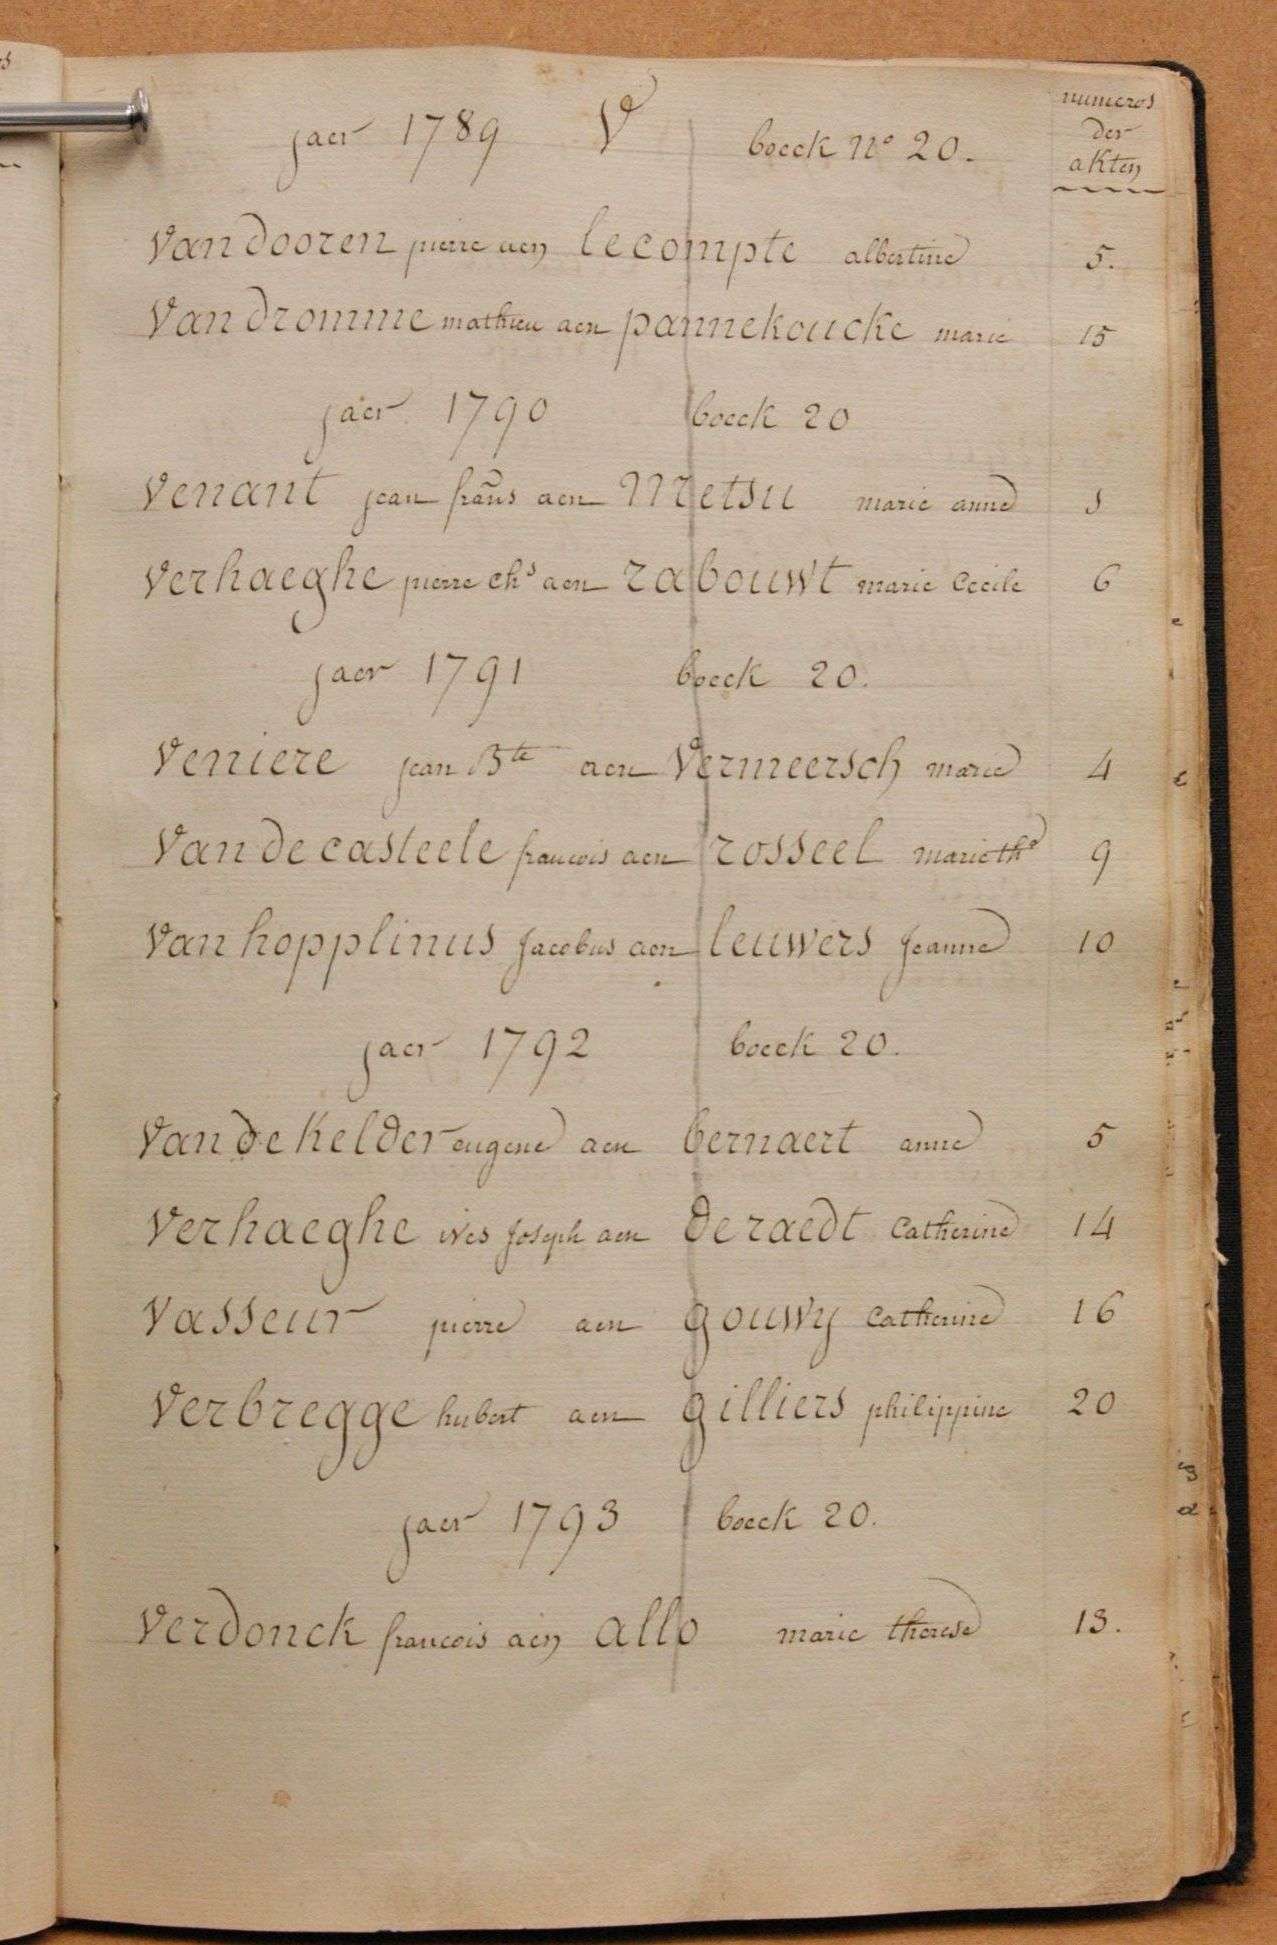 numeros
der
akten
jaer 1789 V boeck n° 20.
Vandooren pierre aen lecompte albertine 5.
Vandromme mathieu aen pannekoucke marie 15
jaer 1790 boeck 20
Venant jean frans aen Metsu marie anne
Verhaeghe pierre chs aen rabouwt marie Cecile 6
jaer 1791 boeck 20.
Veniere jean Bte aen Vermeersch marie 4
Van de casteele francois aen rosseel marie the 9
Van hopplinus Jacobus aen leuwers Jeanne 10
jaer 1792 boeck 20.
Van de Kelder eugene aen bernaert anne 5
Verhaeghe ives Joseph aen de raedt Catherine 14
Vasseur pierre aen gouwy Catherine 16
Verbregge hubert aen gilliers philippine 20
jaer 1793 boeck 20.
Verdonck francois aen allo marie therese 13.